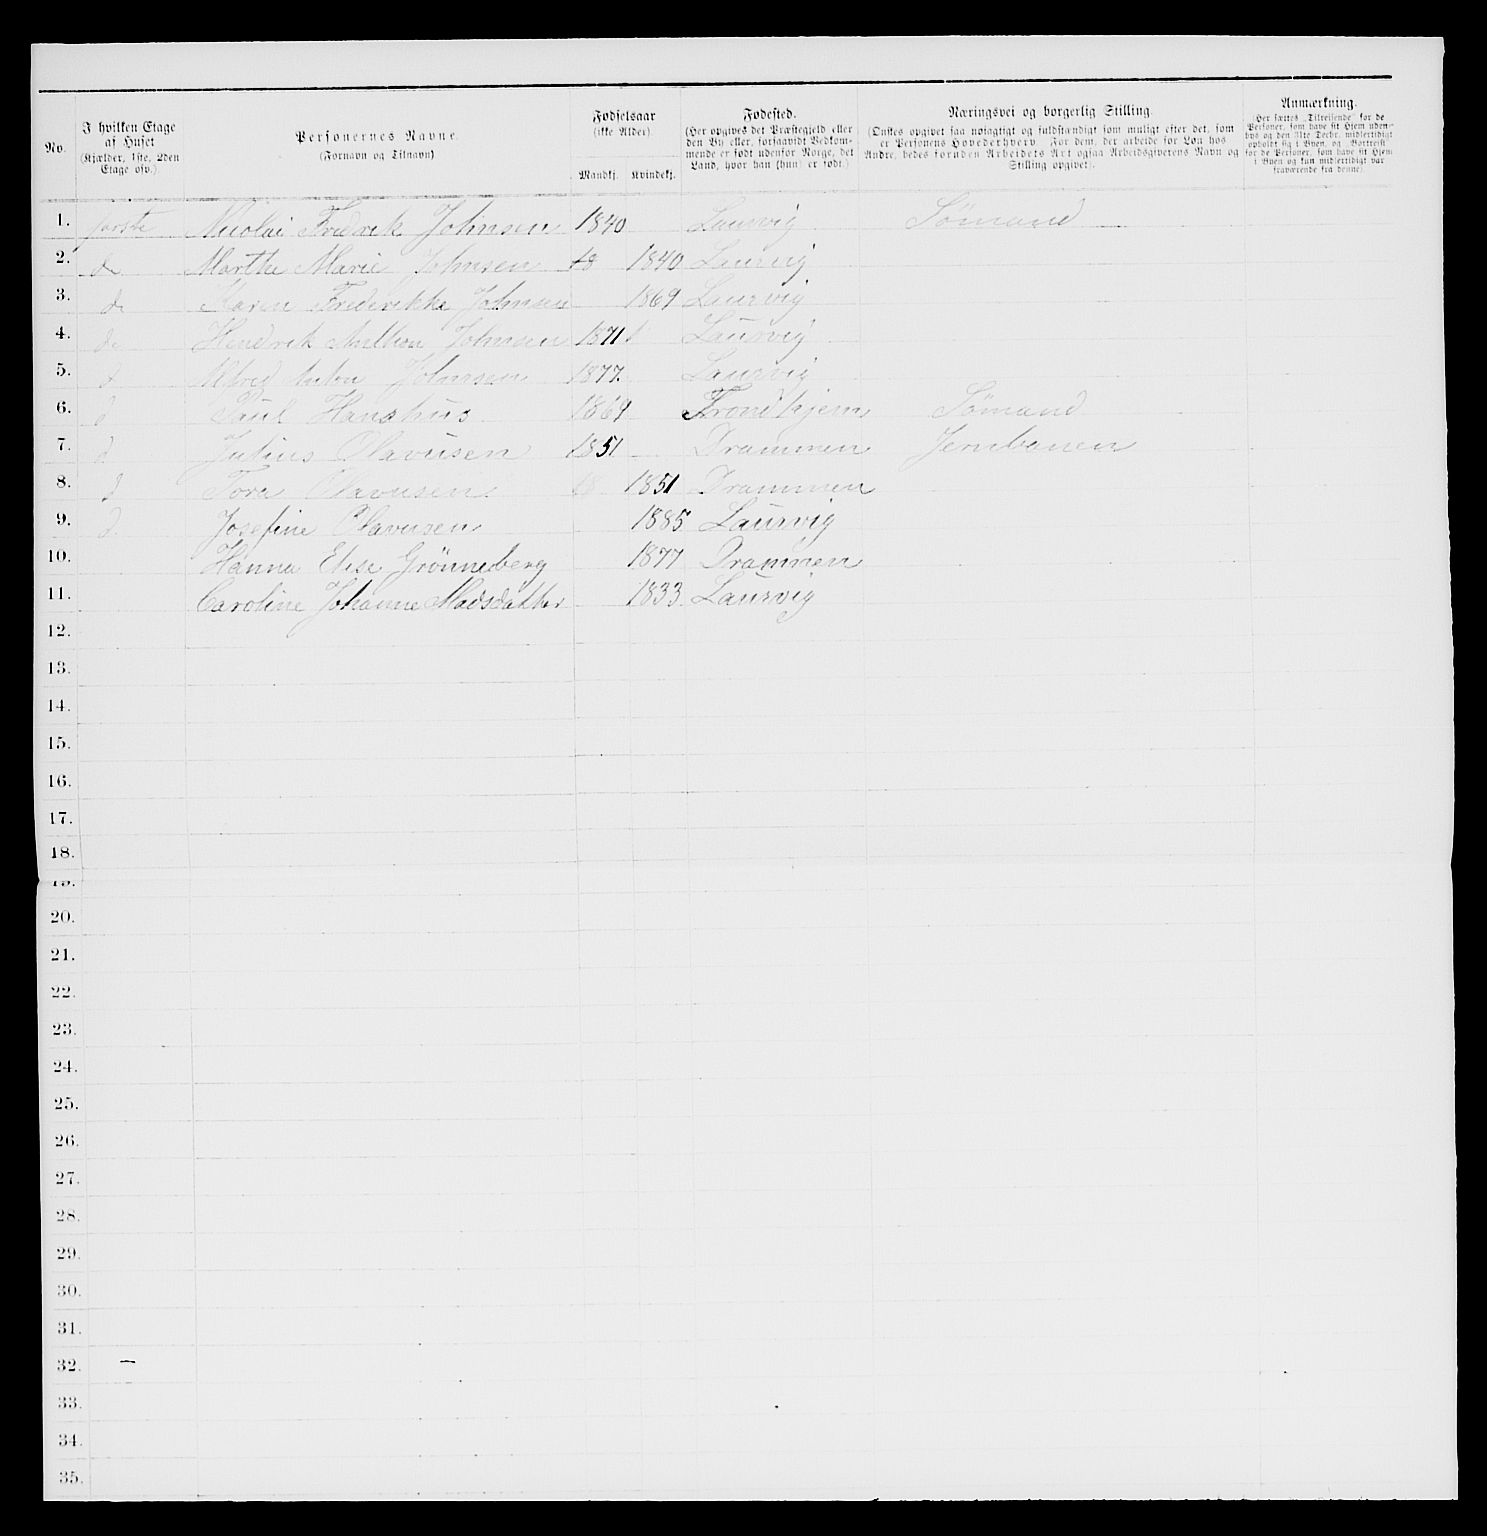 No.
I hvilken Etage af Huset (Kjælder, 1ste, 2den Etage osv.)
Personernes Navne. (Fornavn og Tilnavn)
Fødselsaar (ikke Alder) Mandkj. Kvindekj.
Fødested. (Her opgives det Præstegjeld eller den By eller, forsaavidt Vedkommende er født udenfor Norge, det Land, hvor han (hun) er født.)
Næringsvei og borgerlig Stilling. (Ønskes opgivet saa nøiagtigt og fuldstændigt som muligt efter det, som er Personens Hovederhverv. For dem, der arbeide for Løn hos Andre, bedes foruden Arbeidets Art ogsaa Arbeidsgiverens Navn og Stilling opgivet.)
Anmærkning. (Her sættes „Tilreisende" for de Personer, som have sit Hjem udenbys og den 31te Decbr. midlertidigt opholdt sig i Byen, og „Bortreist" for de Personer, som have sit Hjem i Byen og kun midlertidigt var fraværende fra denne).
1. første Nicolai Fredrek Johnsen 1840 Laurvig Sømand
2. do Marthe Marie Johnsen 18 1840 Laurvig
3. do Karen Frederikke Johnsen 1869 Laurvig
4. do Hendrek Johnsen 1871 Laurvig
5. d Alfred Anton Johnsen 1877. Laurvig
6. d Paul Hanshus 1869 Trondhjem Sømand
7. d Julius Olavusen 1851 Drammen Jernbanen
8. d Tora Olavusen 18 1851 Drammen
9. d Josefine Olavusen 1885 Laurvig
10. Hanna Elise Grønneberg 1877 Drammen
11. Caroline Johanne Madsdatter 1833 Laurvig
12.
13.
14.
15.
16.
17.
18.
19.
20.
21.
22.
23.
24.
25.
26.
27.
28.
29.
30.
31.
32. –
33.
34.
35.